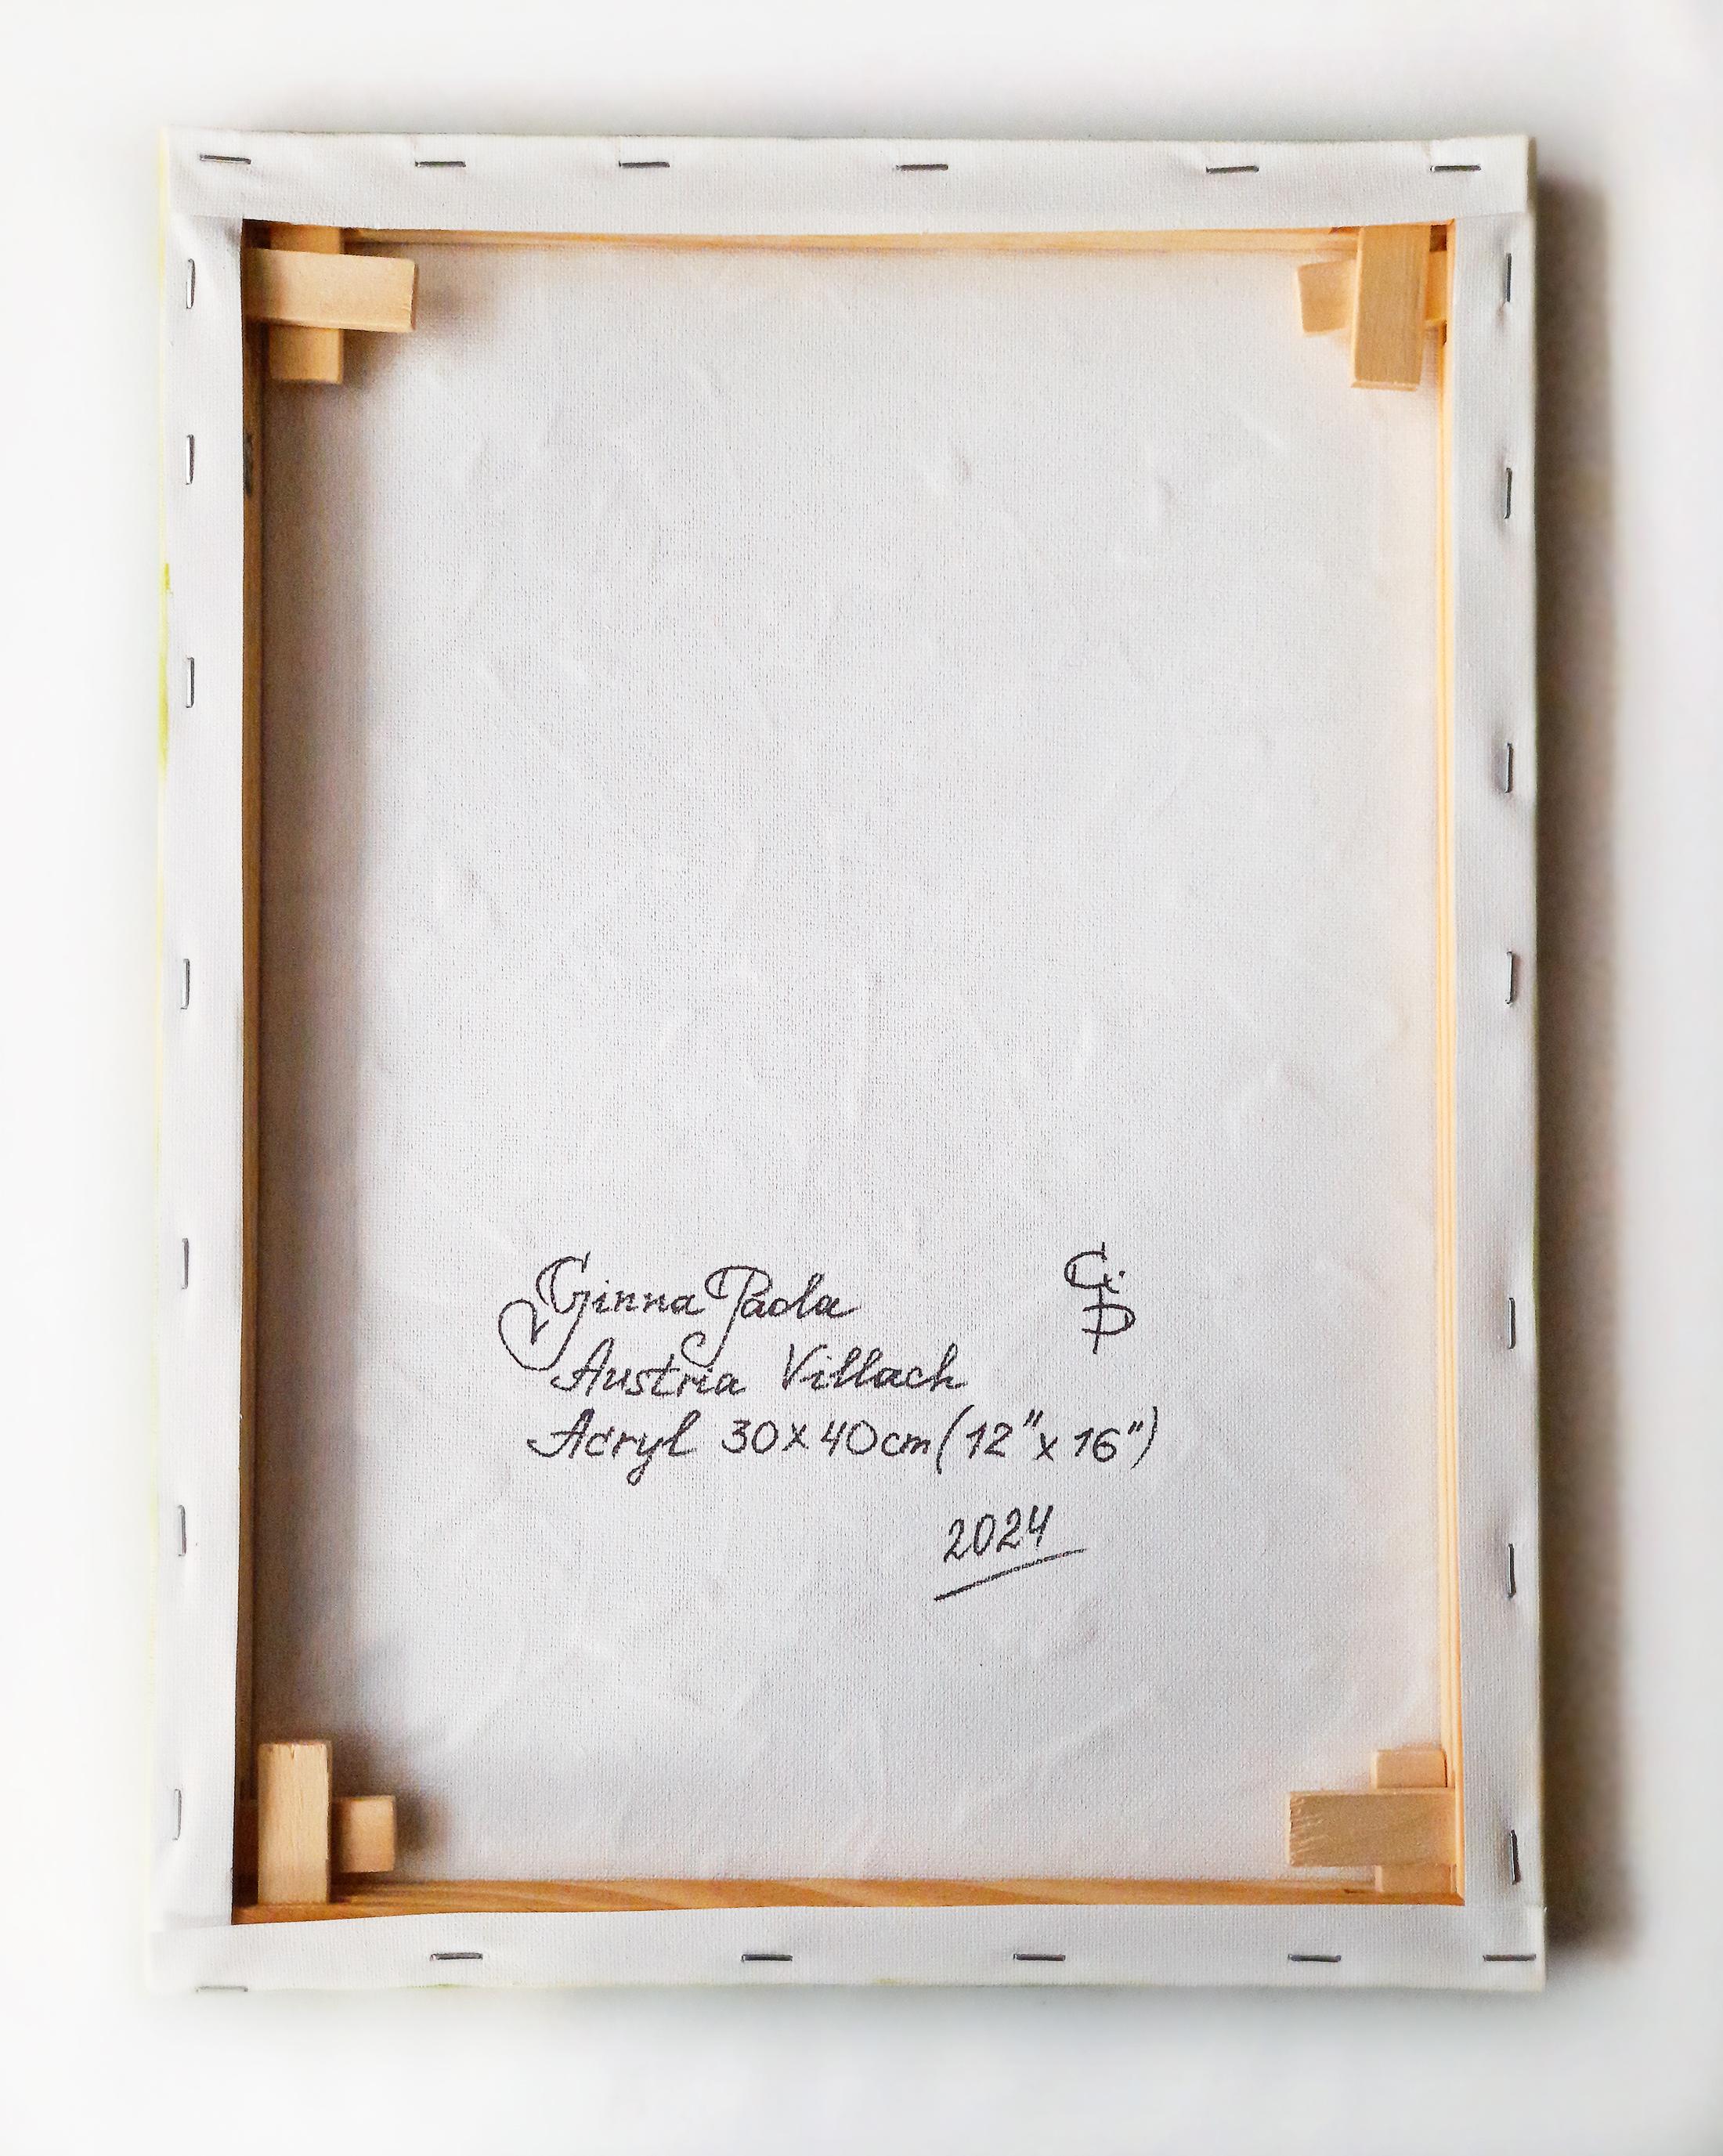 Ginna Paola
G.
P
Austria Villach
Acryl 30x40cm(12"x16")
2024